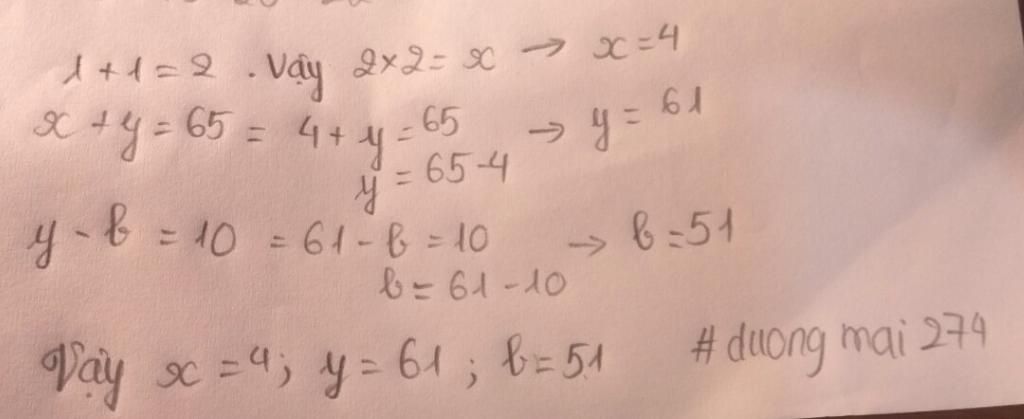 1+1=2 . Vậy 2×2=x → x=4
x+y=65 = 4+y=65 → y=61
y=65-4
y-b=10 = 61-b=10 → b=51
b=61-10
Vậy x=4; y=61; b=51 #duong mai 274